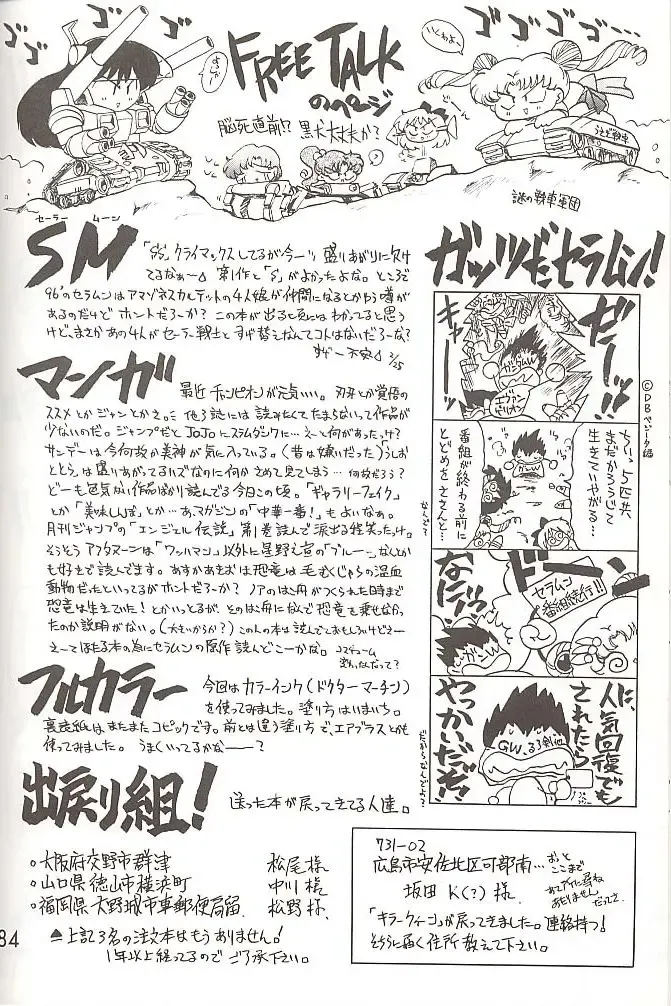 ゴゴゴ
FREE TALK
のページ
脳死直前!? 黒犬大丈夫か?
いくわよ〜
ゴゴゴ
謎の戦車軍団
セーラー ムーン
SM
「SS」クライマックスしてるが今一つ盛りあがりに欠け
てるなぁ〜 第1作と「S」がよかったよな。ところで
96'のセラムンはアマゾネスカルテットの4人娘が仲間になるとかゆう噂が
あるのだけどホントだろーか? この本が出る頃にはわかってると思う
けど、まさかあの4人がセーラー戦士とすげ替えなんてコトはないだろーな?
すげー不安 2/25
マンガ
最近チャンピオンが元気いい。刃牙とか覚悟の
ススメとかジャンとかさ。 他3誌には読みたくてたまらないって作品が
少ないのだ。ジャンプだとJoJoにスラムダンクに…えーて何があったっけ?
サンデーは今何故か美神が気に入っている。(昔は嫌いだった)うしお
ととらは盛りあがってるハズなのに何かさめて見てしまう…何故だろう?
どーも色気ない作品ばかり読んでる今日この頃。「ギャラリーフェイク」
とか「美味しんぼ」とか…あ、マガジンの「中華一番!」もよいなぁ。
月刊ジャンプの「エンジェル伝説」第1巻読んで涙出る程笑ったっけ。
そうそうアフタヌーンは「ワッハマン」以外に星野之宣の「ブルー」なんとか
も好きで読んでます。あすかあきおは恐竜は毛むくじゃらの温血
動物だったといってるがホントだろーか? ノアのはこ舟がつくられた時まで
恐竜は生きていた! とかいっとるが、そのはこ舟になんで恐竜を乗せなかっ
たのか説明がない。(大きいからか?)この人の本は読んでておもしろいけどさー
えーてほたる本の為にセラムンの原作読んどこーかな。
フルカラー
今回はカラーインク(ドクターマーチン)
を使ってみました。塗り方はいまいち。
裏表紙はまたまたコピックです。前とは違う塗り方で、エアブラスとかも
使ってみました。うまくいってるかな———?
出戻り組!
送った本が戻ってきてる人達。
○大阪府交野市群津 松尾様
○山口県徳山市横浜町 中川様
○福岡県大野城市車郵便局留 松野様
▲上記3名の注文本はもうありません!
1年以上経ってるのでご了承下さい。
ガッツだセラムン!
ゼーッ!!
キャー
ガンダムW
エヴァンゲリオン
©DBベジータ編
ちぃっ、5匹共
まだかろうじて
生きていやがる…
番組が終わる前に
とどめをささんと…
なんで?
ドーン
セラムン
番組続行!!
なにィッ!
人気回復でも
されたら
やっかいだぞ!
GW.るろ剣他
だからなんでよ?
731-02
広島市安佐北区可部南…
おっと
ここまで
坂田K(?)様
「キラークィーン」が戻ってきました。連絡待つ!
そちらに届く住所教えて下さい。
84